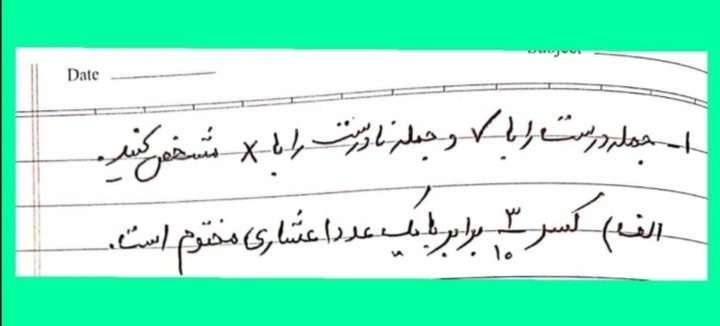 Date
۱- جمله درست را با ✓ و جمله نادرست را با × مشخص کنید.
الف) کسر ۳/۱۰ برابر با یک عدد اعشاری مختوم است.